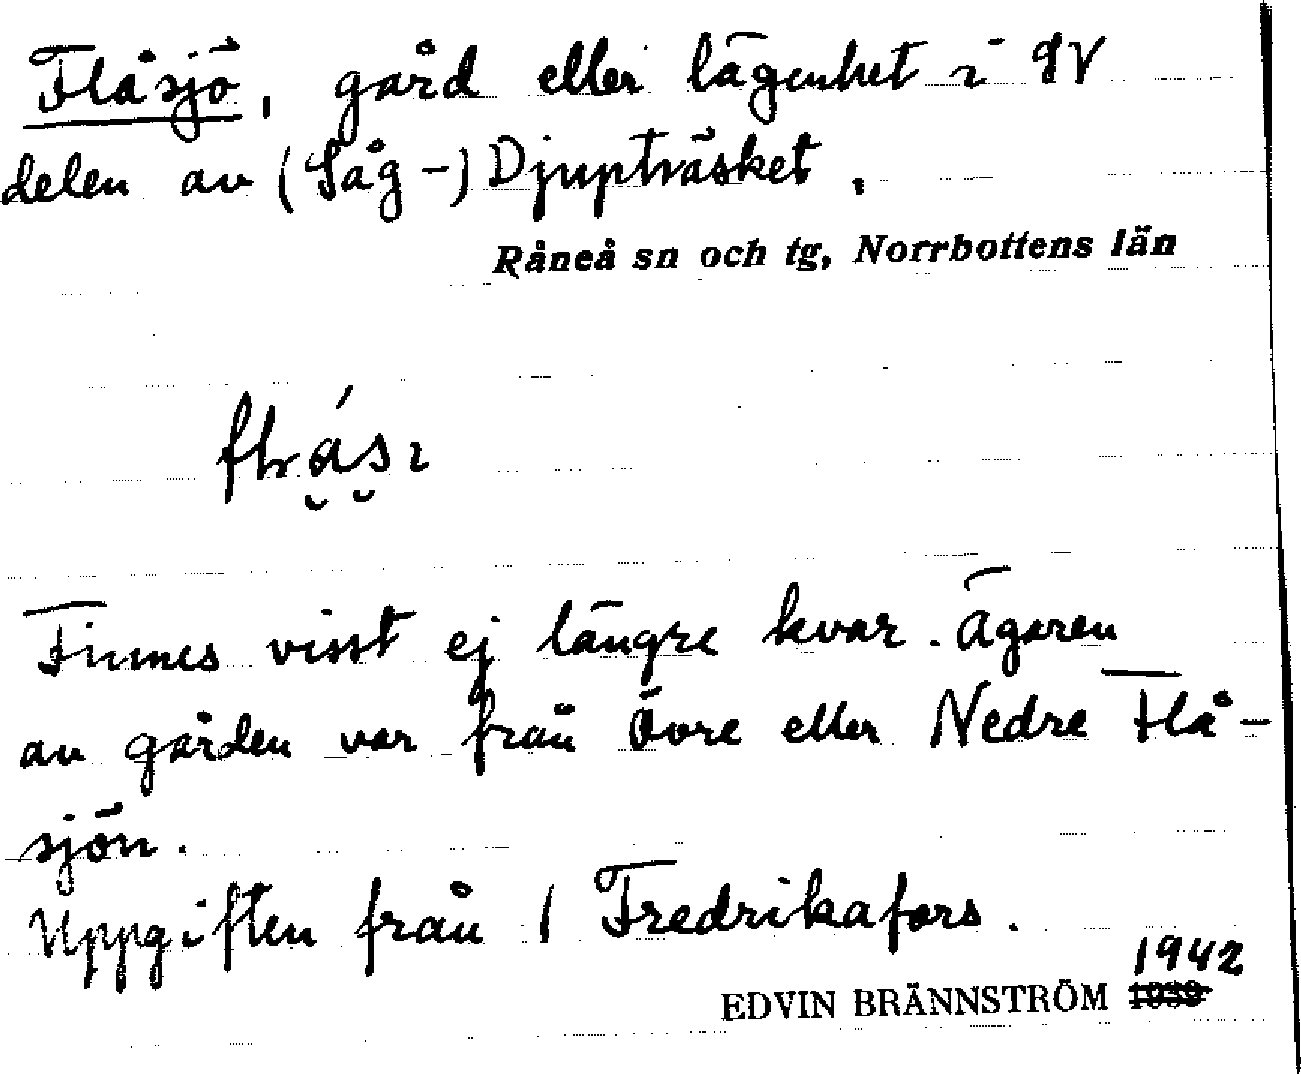 Flåsjö, gård eller lägenhet i SV
delen av (Såg-) Djupträsket.
Råneå sn och tg, Norrbottens län
Finnes visst ej längre kvar. Ägaren
av gården var från Övre eller Nedre Flå-
sjön.
Uppgiften från 1 Fredrikafors.
1942
EDVIN BRÄNNSTRÖM 1939